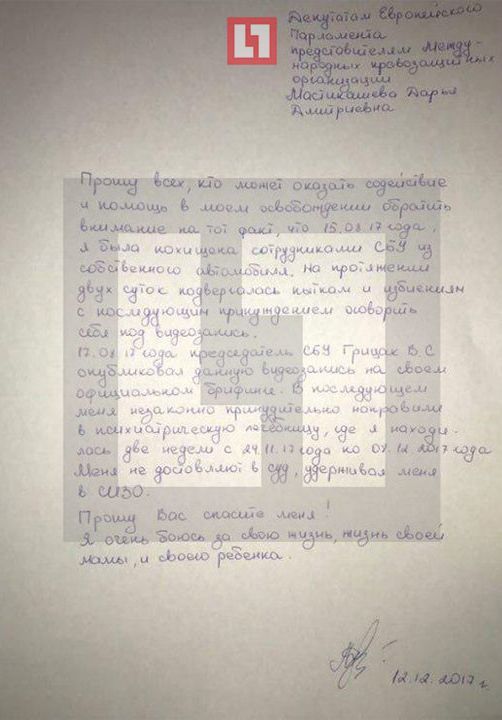 Депутатам Европейского
Парламента
представителям Между-
народных правозащитных
организации
Мастикашева Дарья
Дмитриевна
Прошу всех, кто может оказать содействие
и помощь в моем освобождении обратить
внимание на тот факт, что 15.08.17 года,
я была похищена сотрудниками СБУ из
собственного автомобиля. На протяжении
двух суток подвергалась пыткам и избиениям
с последующим принуждением оговорить
себя под видеозапись.
17.08.17 года председатель СБУ Грицак В.С
опубликовал данную видеозапись на своем
официальном брифинге. В последующем
меня незаконно принудительно направили
в психиатрическую лечебницу, где я находи-
лась две недели с 24.11.17 года по 07.12.2017 года
Меня не доставляют в суд, удерживая меня
в СИЗО.
Прошу Вас спасите меня!
Я очень боюсь за свою жизнь, жизнь своей
мамы, и своего ребенка.
12.12.2017 г.